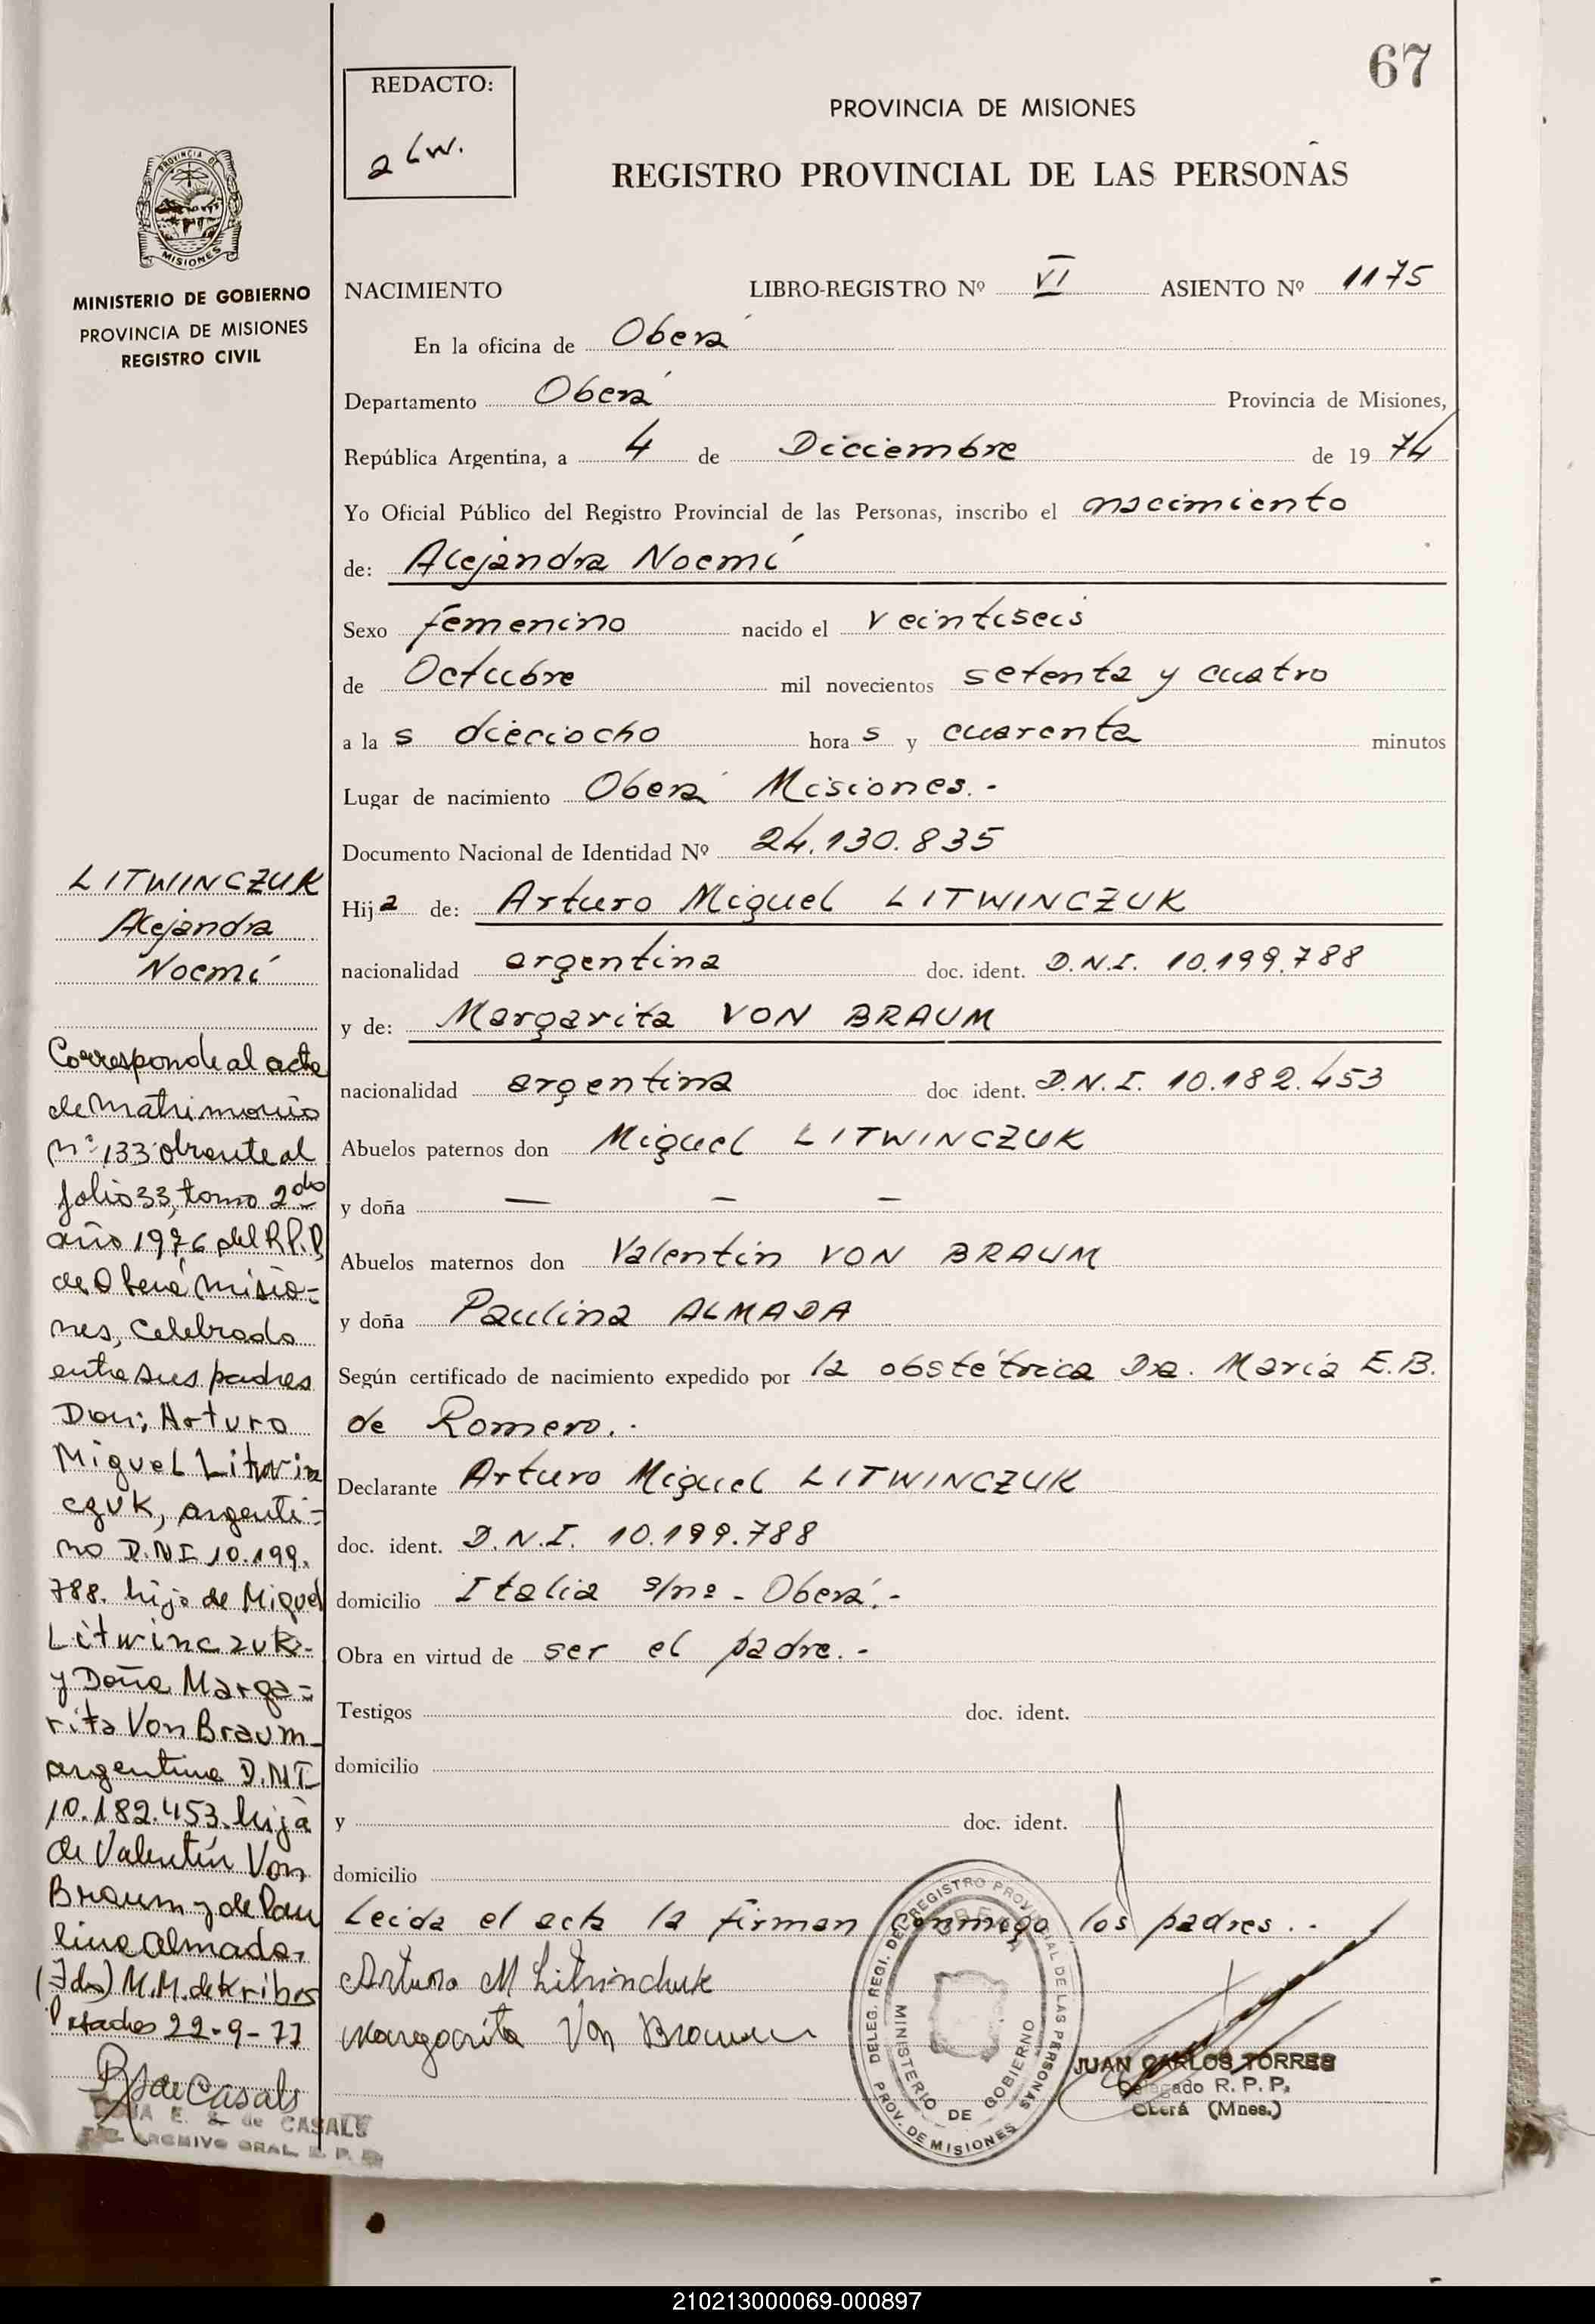 67
REDACTO:
PROVINCIA DE MISIONES
REGISTRO PROVINCIAL DE LAS PERSONAS
PROVINCIA DE
MISIONES
MINISTERIO DE GOBIERNO
PROVINCIA DE MISIONES
REGISTRO CIVIL
NACIMIENTO LIBRO-REGISTRO Nº VI ASIENTO Nº 1175
En la oficina de Oberá
Departamento Oberá Provincia de Misiones,
República Argentina, a 4 de Diciembre de 19 74
Yo Oficial Público del Registro Provincial de las Personas, inscribo el nacimiento
de: Alejandra Noemí
Sexo femenino nacido el veintiseis
de Octubre mil novecientos setenta y cuatro
a la s dieciocho hora s y cuarenta minutos
Lugar de nacimiento Oberá Misiones.-
Documento Nacional de Identidad Nº 24.130.835
Hij a de: Arturo Miguel LITWINCZUK
nacionalidad argentina doc. ident. D.N.I. 10.199.788
y de: Margarita VON BRAUM
nacionalidad argentina doc. ident. D.N.I. 10.182.453
Abuelos paternos don Miguel LITWINCZUK
y doña — — —
Abuelos maternos don Valentin VON BRAUM
y doña Paulina ALMADA
Según certificado de nacimiento expedido por la obstétrica Dra. Maria E.B.
de Romero.-
Declarante Arturo Miguel LITWINCZUK
doc. ident. D.N.I. 10.199.788
domicilio Italia s/nº - Oberá.-
Obra en virtud de ser el padre.-
Testigos doc. ident.
domicilio
y doc. ident.
domicilio
Leida el acta la firman conmigo los padres..-
Arturo M Litwinchuk
Margarita Von Braum
DELEG. REGI. DEL REGISTRO PROVINCIAL DE LAS PERSONAS
OBERA
MINISTERIO DE GOBIERNO
PROV. DE MISIONES
JUAN CARLOS TORRES
Delegado R. P. P.
Oberá (Mnes.)
LITWINCZUK
Alejandra
Noemí
Corresponde al acta
de Matrimonio
nº 133 obrante al
folio 33, tomo 2do
año 1976 del R.P.P
de Oberá Misio=
nes, Celebrado
entre sus padres
Don; Arturo
Miguel Litwin
czuk, argenti=
no D.N.I 10.199.
788. hijo de Miguel
Litwinczuk-
y Doña Marga=
rita Von Braum-
argentina D.N.I-
10.182.453. hija
de Valentín Von
Braum y de Pau
lina Almada.
(Fdo) M.M. de Kribos
Posadas 22-9-77
de Casals
E. S. de CASALS
ARCHIVO GRAL R. P. P.
210213000069-000897